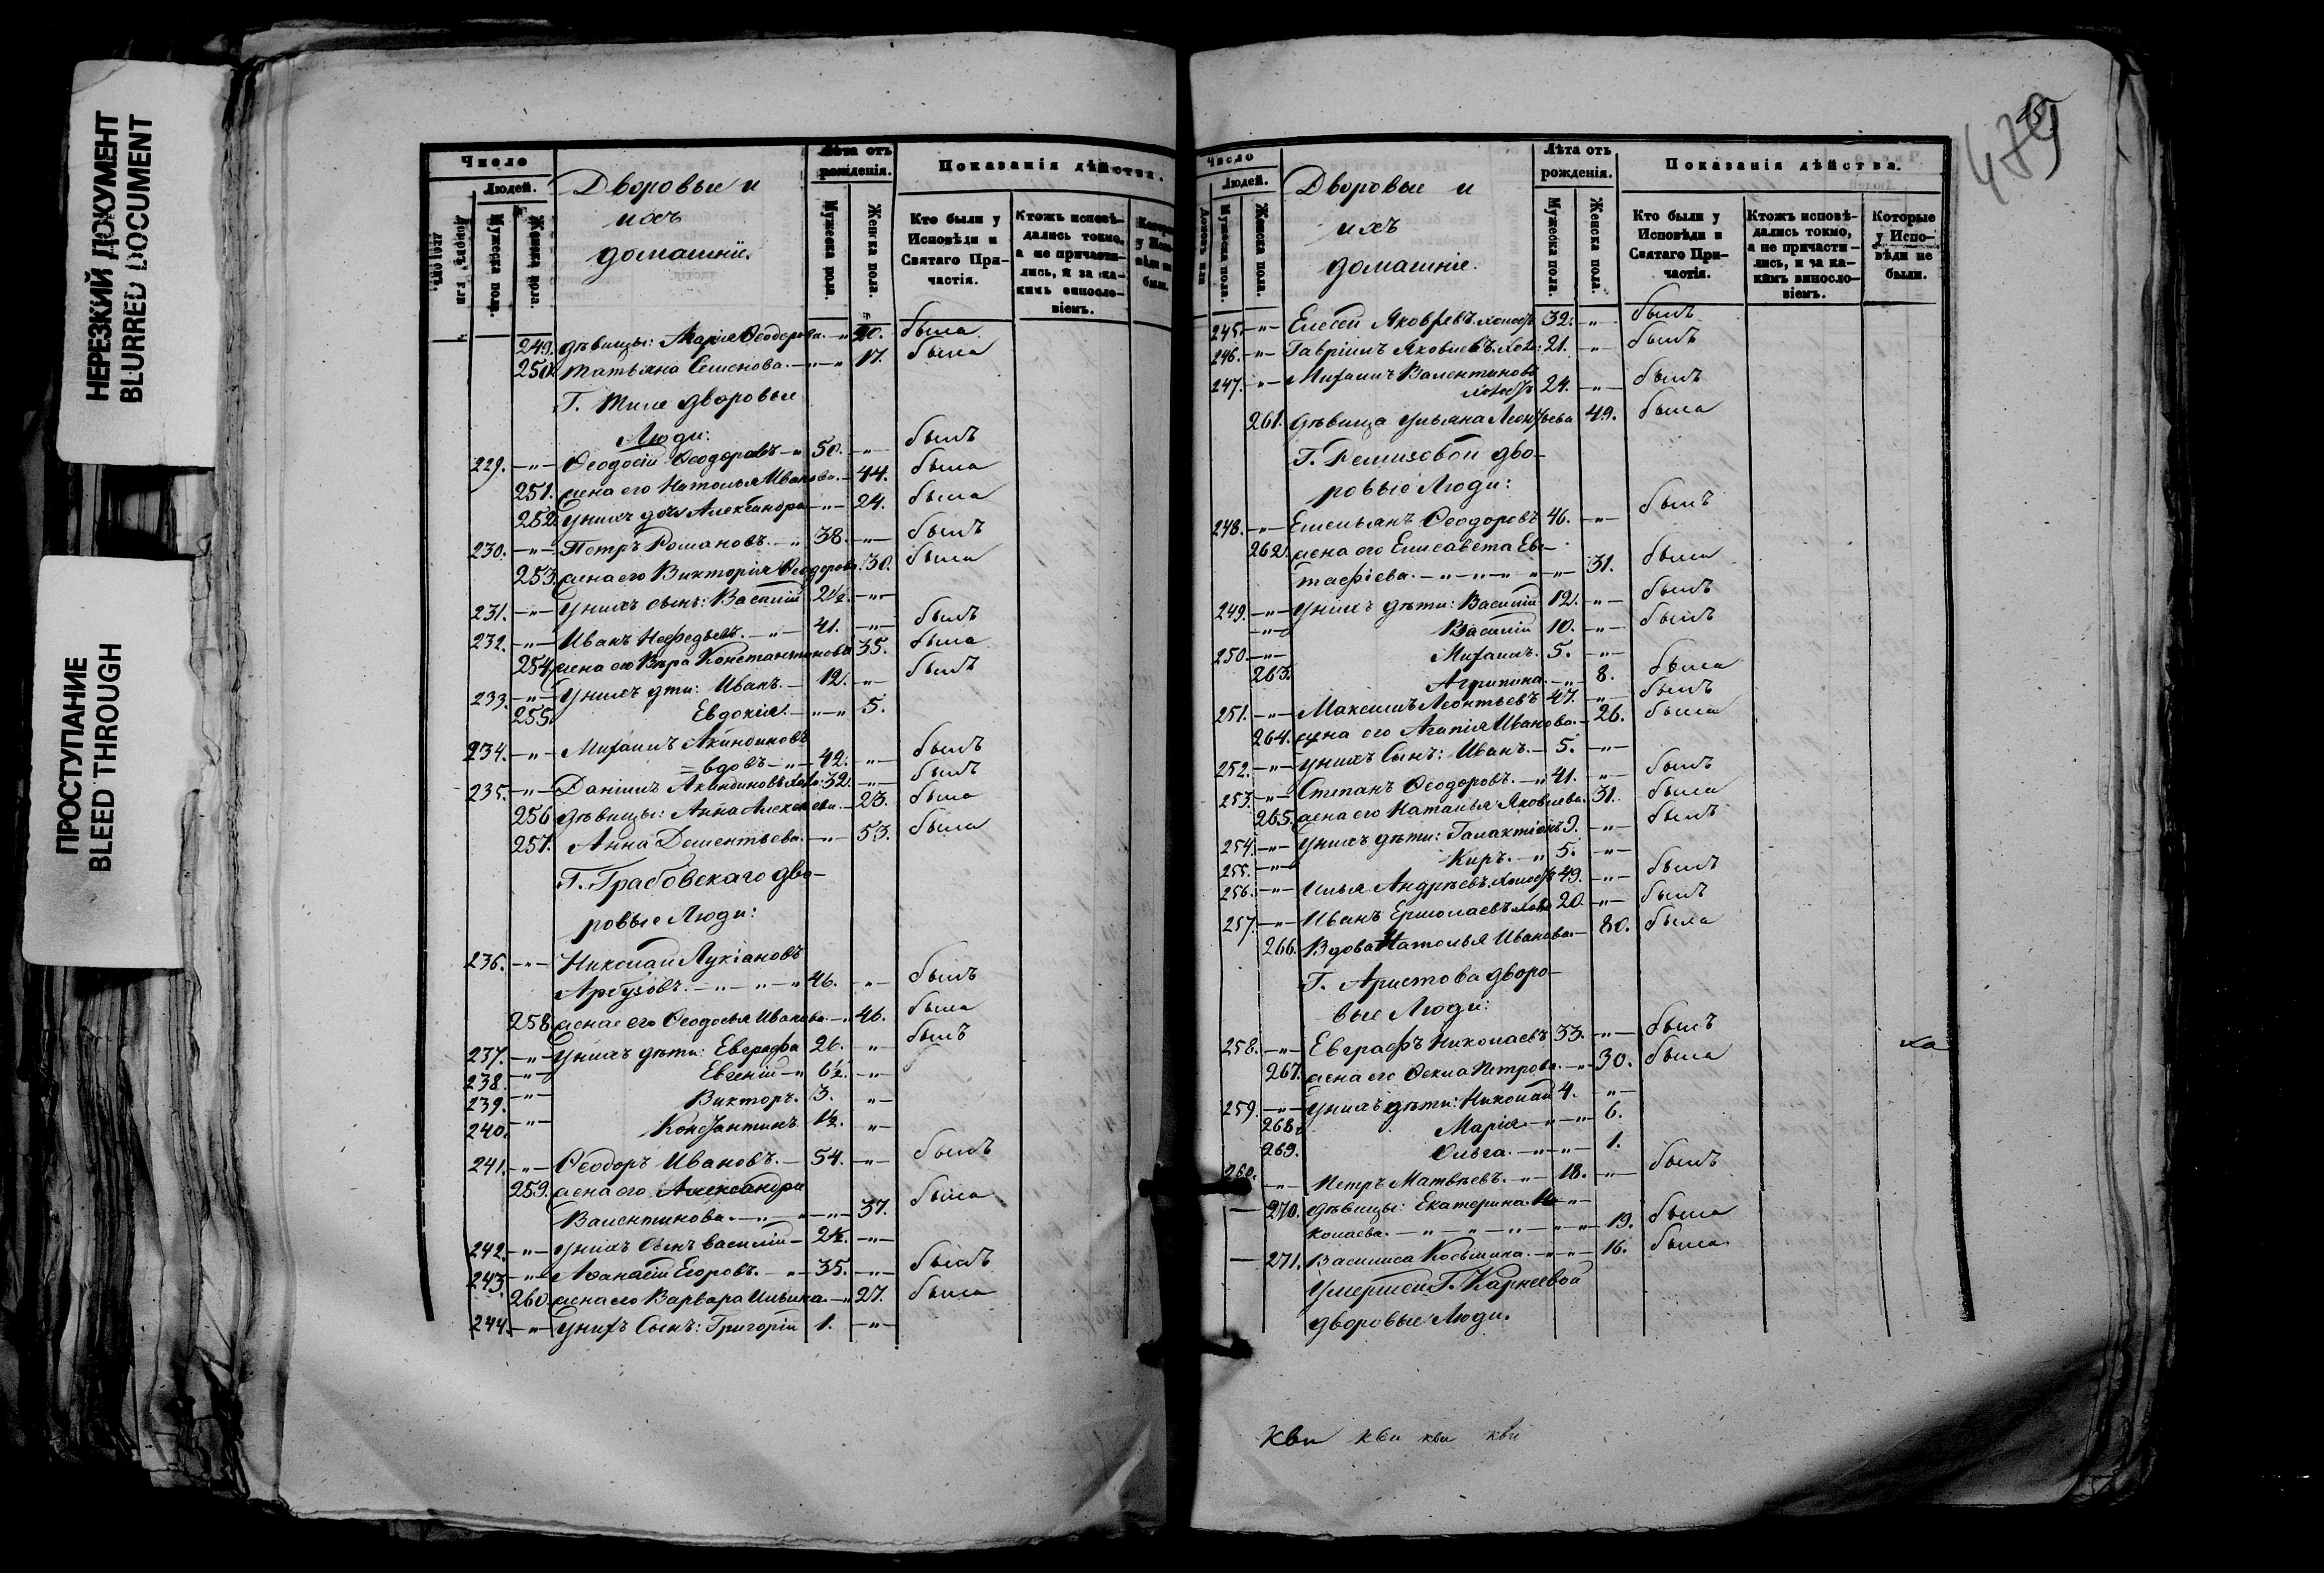 НЕРЕЗКИЙ ДОКУМЕНТ
BLURRED DOCUMENT
ПРОСТУПАНИЕ
BLEED THROUGH
Число
Людей.
Дворовъ или
Мужеска пола.
Женска пола.
Дворовые и
ихъ
домашніе.
Лѣта отъ
рожденія.
Мужеска пола.
Женска пола.
Показанія дѣйства.
Кто были у
Исповѣди и
Святаго При-
частія.
Ктожъ исповѣ-
дались токмо,
а не причасти-
лись, и за ка-
кимъ винословіемъ.
249. дѣвицы: Марія Ѳеодорова. — " 20. была
250. Татьяна Семенова. — " — " 17. была
Г. дворовые
Люди:
229. — " — Ѳеодосій Ѳеодоровъ — " 50. — " — былъ
251. жена его Наталья Иванова. — 44. была
252. у нихъ дочь Александра — " — 24. была
230. — " — Петръ Романовъ. — " 38. — " — былъ
253. жена его Викторія Ѳеодорова. 30. была
231. — " — у нихъ сынъ: Василій 2½. — " —
232. — " — Иванъ Нефедьевъ. — " — 41. — " — былъ
254. жена его Вѣра Константинова 35. была
233. — " — у нихъ дѣти: Иванъ. — 12. — " — былъ
255. Евдокія. — " — " 5.
234. — " — Михаилъ Акиндиновъ
= вдовъ — " — 42. — " — былъ
235. — " — Даніилъ Акиндиновъ холо: 32. — " — былъ
256. дѣвицы: Анна Алексѣева. — 23. была
257. Анна Дементьева. — " — 53. была
Г. Грабовскаго дво-
ровые Люди:
236. — " — Николай Лукіановъ
Арбузовъ. — " — " — " 46. — " — былъ
258. жена его Ѳеодосья Иванова. — " 46. была
237. — " — у нихъ дѣти: Евграфъ 26. — " — былъ
238. — " — Евгеній — " 6½. — " —
239. — " — Викторъ. 3. — " —
240. — " — Константинъ 1½. — " —
241. — " — Ѳеодоръ Ивановъ. — 54. — " — былъ
259. жена его Александра
Валентинова. — " — " — " — 37. была
242. — " — у нихъ сынъ Василій — 2½. — " —
243. — " — Аѳанасій Егоровъ. — " — 35. — " — былъ
260. жена его Варвара Ильина. — " 27. была
244. — " — у нихъ Сынъ: Григорій 1. — " —
489
Число
Людей.
Дворовъ или
Мужеска пола.
Женска пола.
Дворовые и
ихъ
домашніе.
Лѣта отъ
рожденія.
Мужеска пола.
Женска пола.
Показанія дѣйства.
Кто были у
Исповѣди и
Святаго При-
частія.
Ктожъ исповѣ-
дались токмо,
а не причасти-
лись, и за ка-
кимъ виносло-
віемъ.
Которые
у Испо-
вѣди не
были.
245. — " — Елесей Яковлевъ холостъ 32. — " — былъ
246. — " — Гавріилъ Яковлевъ. холо: 21. — " — былъ
247. — " — Михаилъ Валентиновъ
холостъ 24. — " — былъ
261. дѣвица Ульяна Леонтьева 49. была
Г. Ремизовой дво-
ровые Люди:
248. — " — Емельянъ Ѳеодоровъ 46. — " — былъ
262. жена его Елисавета Ев-
тафіева. — " — " — " — " — 31. была
249. — " — у нихъ дѣти: Василій 12. — " — былъ
— " — Василій 10. — " — былъ
250. — " — Михаилъ. 5. — " —
263. Агрипина. — " — 8. была
251. — " — Максимъ Леонтьевъ 47. — " — былъ
264. жена его Агапія Иванова. — 26. была
252. — " — у нихъ Сынъ: Иванъ. — 5. — " —
253. — " — Степанъ Ѳеодоровъ. — " 41. — " — былъ
265. жена его Наталья Яковлева. 31. была
254. — " — у нихъ дѣти: Галактіонъ 9. — " — былъ
255. — " — Киръ. — " 5. — " —
256. — " — Илья Андреевъ. холостъ 49. — " — былъ
257. — " — Иванъ Ермолаевъ холо 20. — " — былъ
266. Вдова Наталья Иванова. — 80. была
Г. Аристова дворо-
вые Люди:
258. — " — Евграфъ Николаевъ 33. — " — былъ
267. жена его Ѳекла Петрова. — " 30. была
259. — " — у нихъ дѣти: Николай 4. — " —
268. Марія. — " — " 6.
269. Ольга. — " — " — 1.
260. — " — Петръ Матвѣевъ. — " — 18. — " — былъ
— 270. дѣвицы: Екатерина Ни-
колаева. — " — " — " — " — " 19. была
— 271. Василиса Косьмина. — " — " — 16. была
Умершей Г. Карнеевой
дворовые Люди.
ка
кви кви кви кви